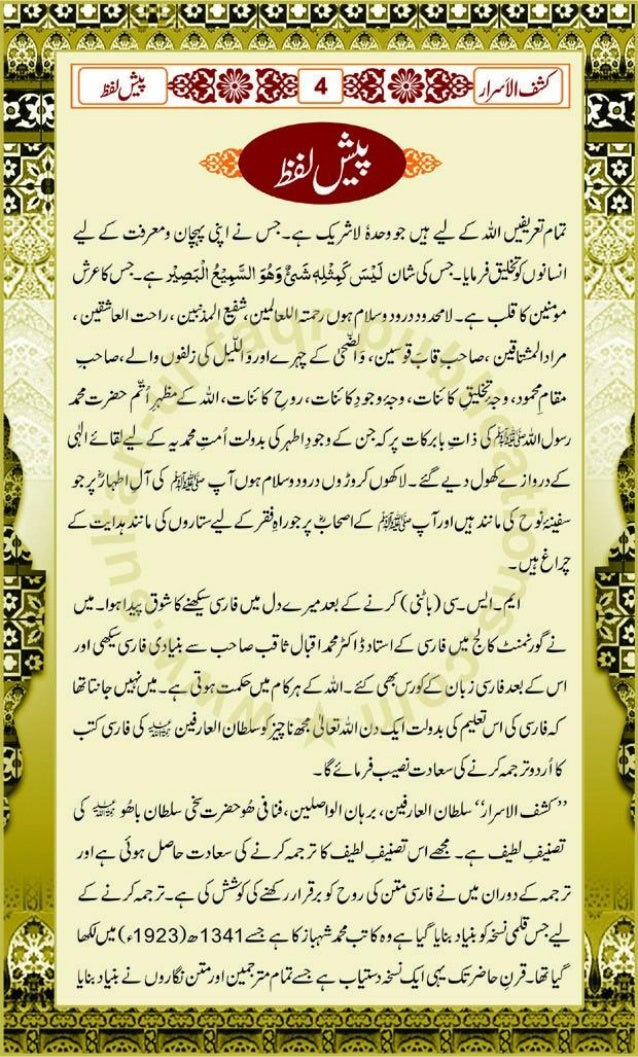 کشف الاسرار 4 پیش لفظ
پیش لفظ
تمام تعریفیں اللہ کے لیے ہیں جو وحدہٗ لاشریک ہے۔ جس نے اپنی پہچان و معرفت کے لیے
انسانوں کو تخلیق فرمایا۔ جس کی شان لَیْسَ کَمِثْلِہٖ شَیْئٌ وَھُوَ السَّمِیْعُ الْبَصِیْر ہے۔ جس کا عرش
مومنین کا قلب ہے۔ لامحدود درود و سلام ہوں رحمتہ اللعالمین، شفیع المذنبین، راحت العاشقین،
مراد المشتاقین، صاحبِ قابَ قوسین، وَالضُّحٰی کے چہرے اور وَالَّیل کی زلفوں والے، صاحبِ
مقامِ محمود، وجۂ تخلیقِ کائنات، وجۂ وجودِ کائنات، روحِ کائنات، اللہ کے مظہرِ اُتم حضرت محمد
رسول اللہ ﷺ کی ذاتِ بابرکات پر کہ جن کے وجودِ اطہر کی بدولت اُمتِ محمدیہ کے لیے لقائے الٰہی
کے دروازے کھول دیے گئے۔ لاکھوں کروڑوں درود و سلام ہوں آپ ﷺ کی آلِ اطہارؓ پر جو
سفینۂ نوح کی مانند ہیں اور آپ ﷺ کے اصحابؓ پر جو راہِ فقر کے لیے ستاروں کی مانند ہدایت کے
چراغ ہیں۔
ایم۔ایس۔سی (باٹنی) کرنے کے بعد میرے دل میں فارسی سیکھنے کا شوق پیدا ہوا۔ میں
نے گورنمنٹ کالج میں فارسی کے استاد ڈاکٹر محمد اقبال ثاقب صاحب سے بنیادی فارسی سیکھی اور
اس کے بعد فارسی زبان کے کورس بھی کئے۔ اللہ کے ہر کام میں حکمت ہوتی ہے۔ میں نہیں جانتا تھا
کہ فارسی کی اس تعلیم کی بدولت ایک دن اللہ تعالیٰ مجھ ناچیز کو سلطان العارفین کی فارسی کتب
کا اُردو ترجمہ کرنے کی سعادت نصیب فرمائے گا۔
’’کشف الاسرار‘‘ سلطان العارفین، برہان الواصلین، فنا فی ھُو حضرت سخی سلطان باھُو کی
تصنیفِ لطیف ہے۔ مجھے اس تصنیفِ لطیف کا ترجمہ کرنے کی سعادت حاصل ہوئی ہے اور
ترجمہ کے دوران میں نے فارسی متن کی روح کو برقرار رکھنے کی کوشش کی ہے۔ ترجمہ کرنے کے
لیے جس قلمی نسخہ کو بنیاد بنایا گیا ہے وہ کاتب محمد شہباز کا ہے جسے 1341ھ (1923ء) میں لکھا
گیا تھا۔ قرنِ حاضر تک یہی ایک نسخہ دستیاب ہے جسے تمام مترجمین اور متن نگاروں نے بنیاد بنایا